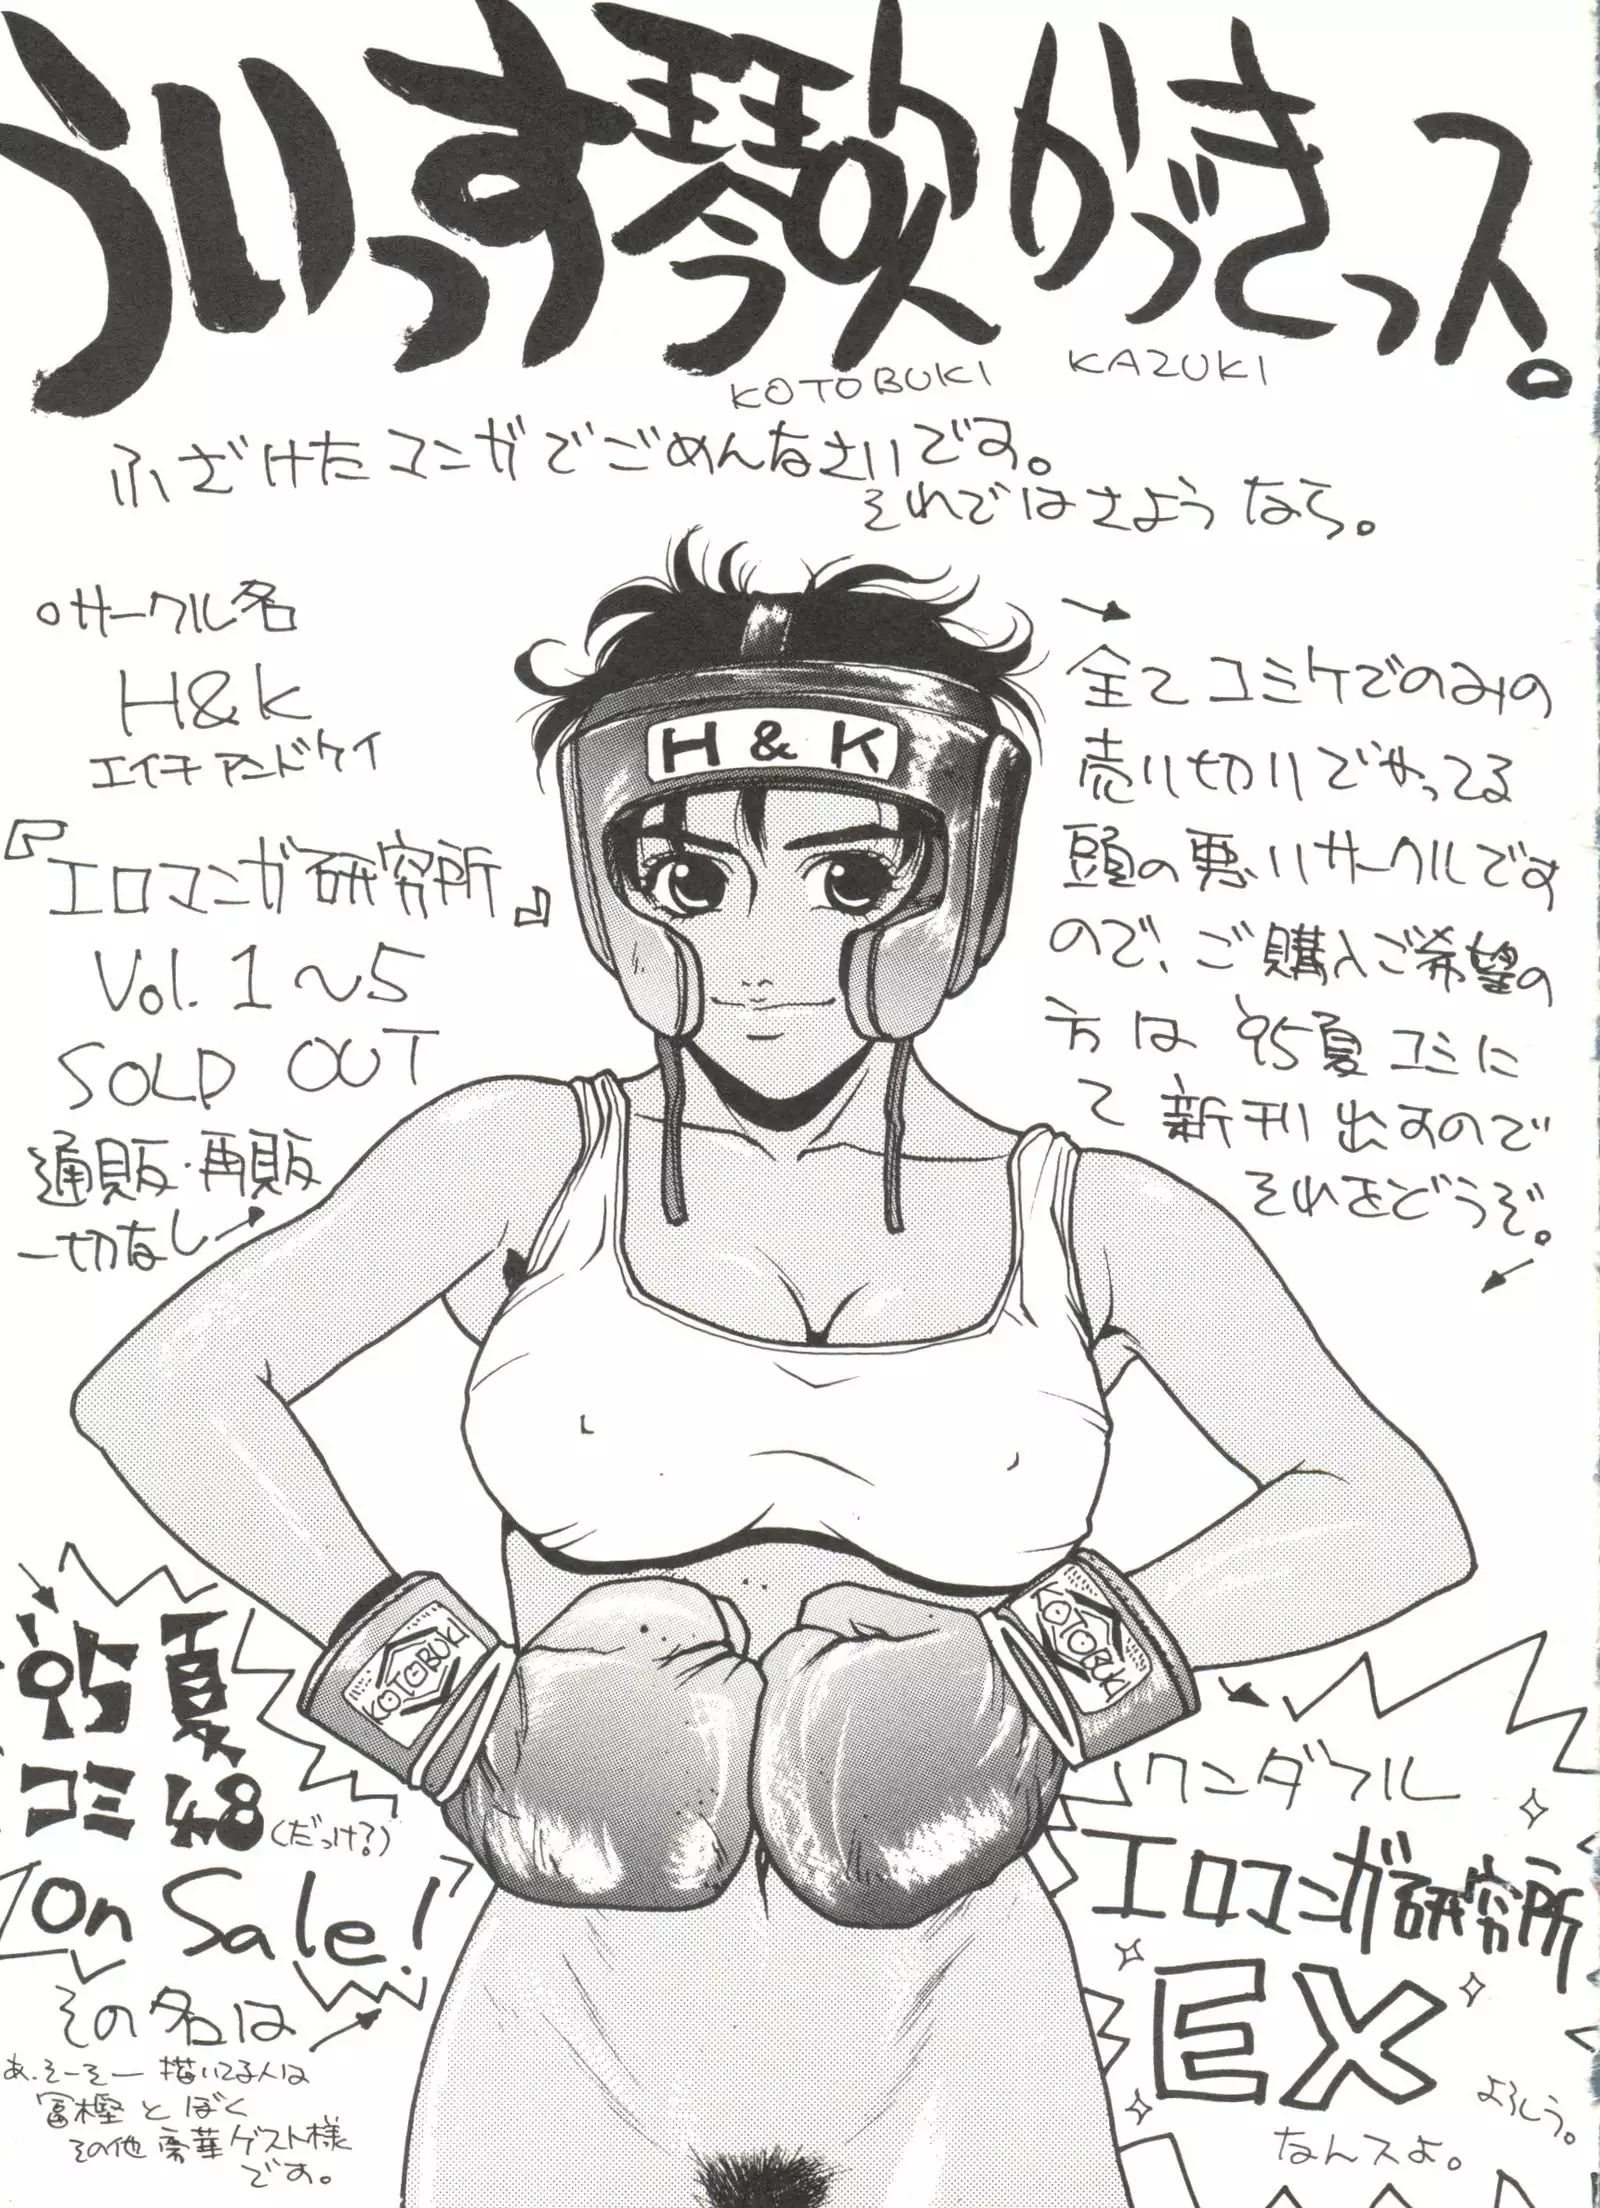 ういっす琴吹かづきっス。
KOTOBUKI KAZUKI
ふざけたマンガでごめんなさいです。
それではさようなら。
○サークル名
H&K
エイチアンドケイ
『エロマンガ研究所』
Vol.1～5
SOLD OUT
通販・再販
一切なし→
全てコミケでのみの
売り切りでやってる
頭の悪いサークルです
ので、ご購入ご希望の
方は'95夏コミに
て新刊出すので
それをどうぞ。
H&K
KOTOBUKI
KOTOBUKI
'95夏
コミ48(だっけ?)
On Sale!
その名は
あ、そーそー描いてる人は
冨樫とぼく
その他豪華ゲスト様
です。
ワンダフル
エロマンガ研究所
EX
よろしう。
なんスよ。